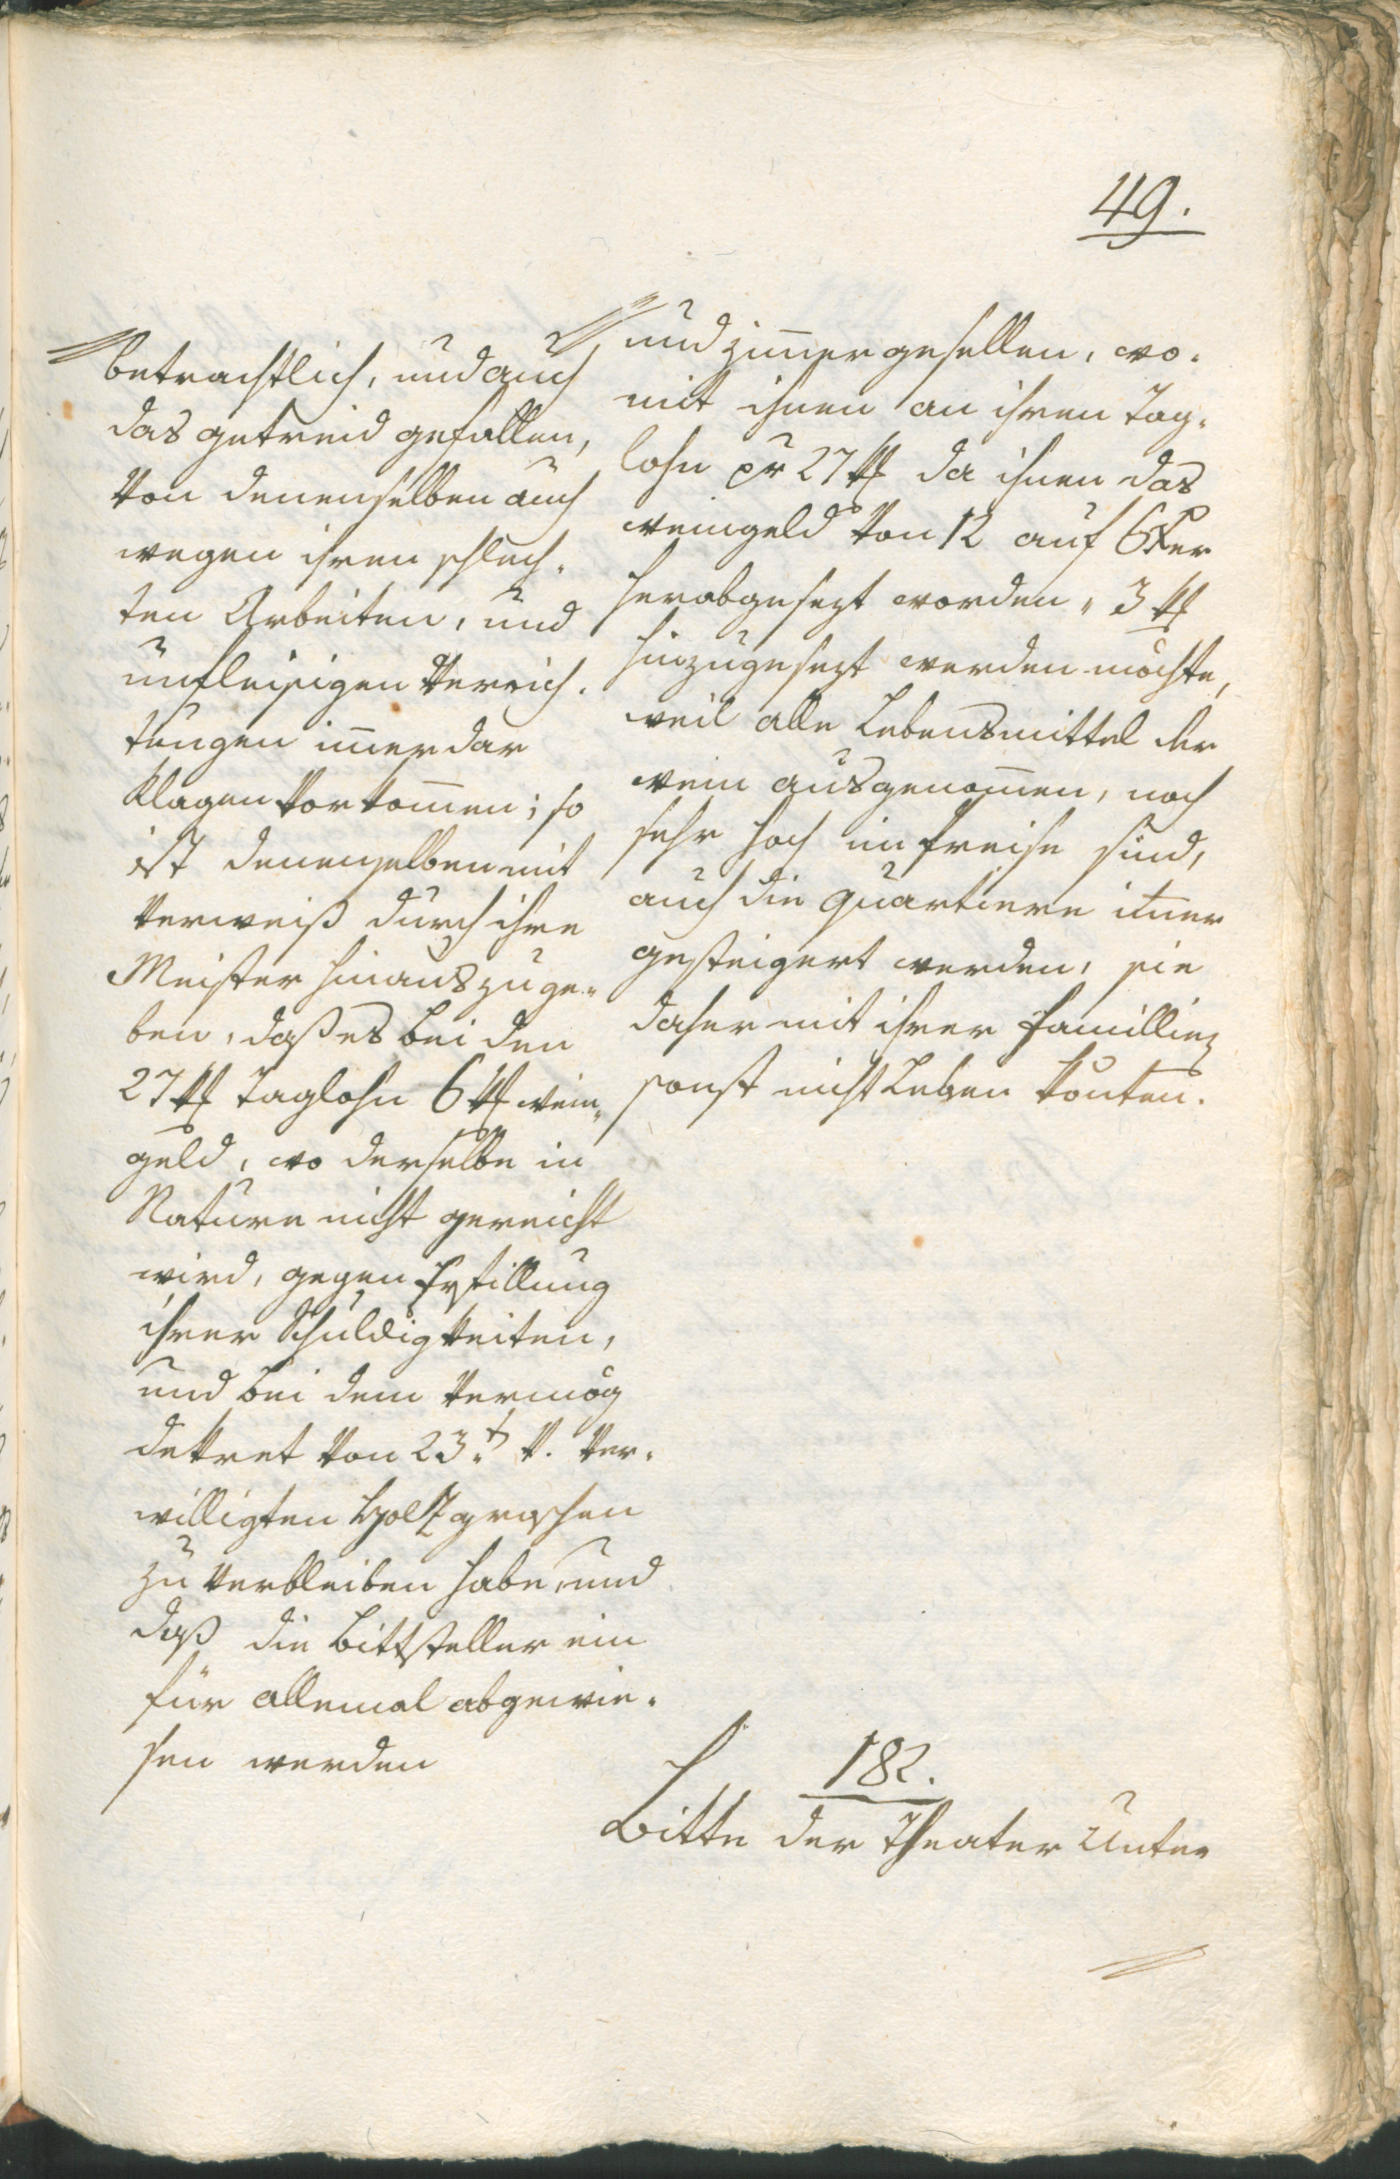 49.
betrachtlich, und auch
das getreid gefallen,
von denenselben auch
wegen ihren schlech-
ten Arbeiten, und
unfleisigen Verrich-
tungen im̅erdar
klagen vorkom̅en; so
ist denenselben mit
Verweiß durch ihre
Meister hinauszuge-
ben, daß es bei den
27 xr Taglohn 6 xr wein-
geld, wo derselbe in
Natura nicht gereicht
wird, gegen Erfillung
ihrer Schuldigkeiten,
und bei dem vermög
dekret von 23t. v. ver-
willigten Holzgroschen
zu verbleiben habe, und
daß die Bittsteller ein
für allemal abgewie-
sen werden
und zim̅ergesellen, wo-
mit ihnen an ihren Tag-
lohn pr 27 xr da ihnen das
weingeld von 12 auf 6 xer
herabgesezt worden, 3 xr
hinzugesezt werden möchte,
weil alle Lebensmittel der
wein ausgenom̅en, noch
sehr hoch im Preise sind,
auch die Quartiere im̅er
gesteigert werden, sie
daher mit ihrer Famillie
sonst nicht Leben könten.
182.
Bitte der Theater Unter